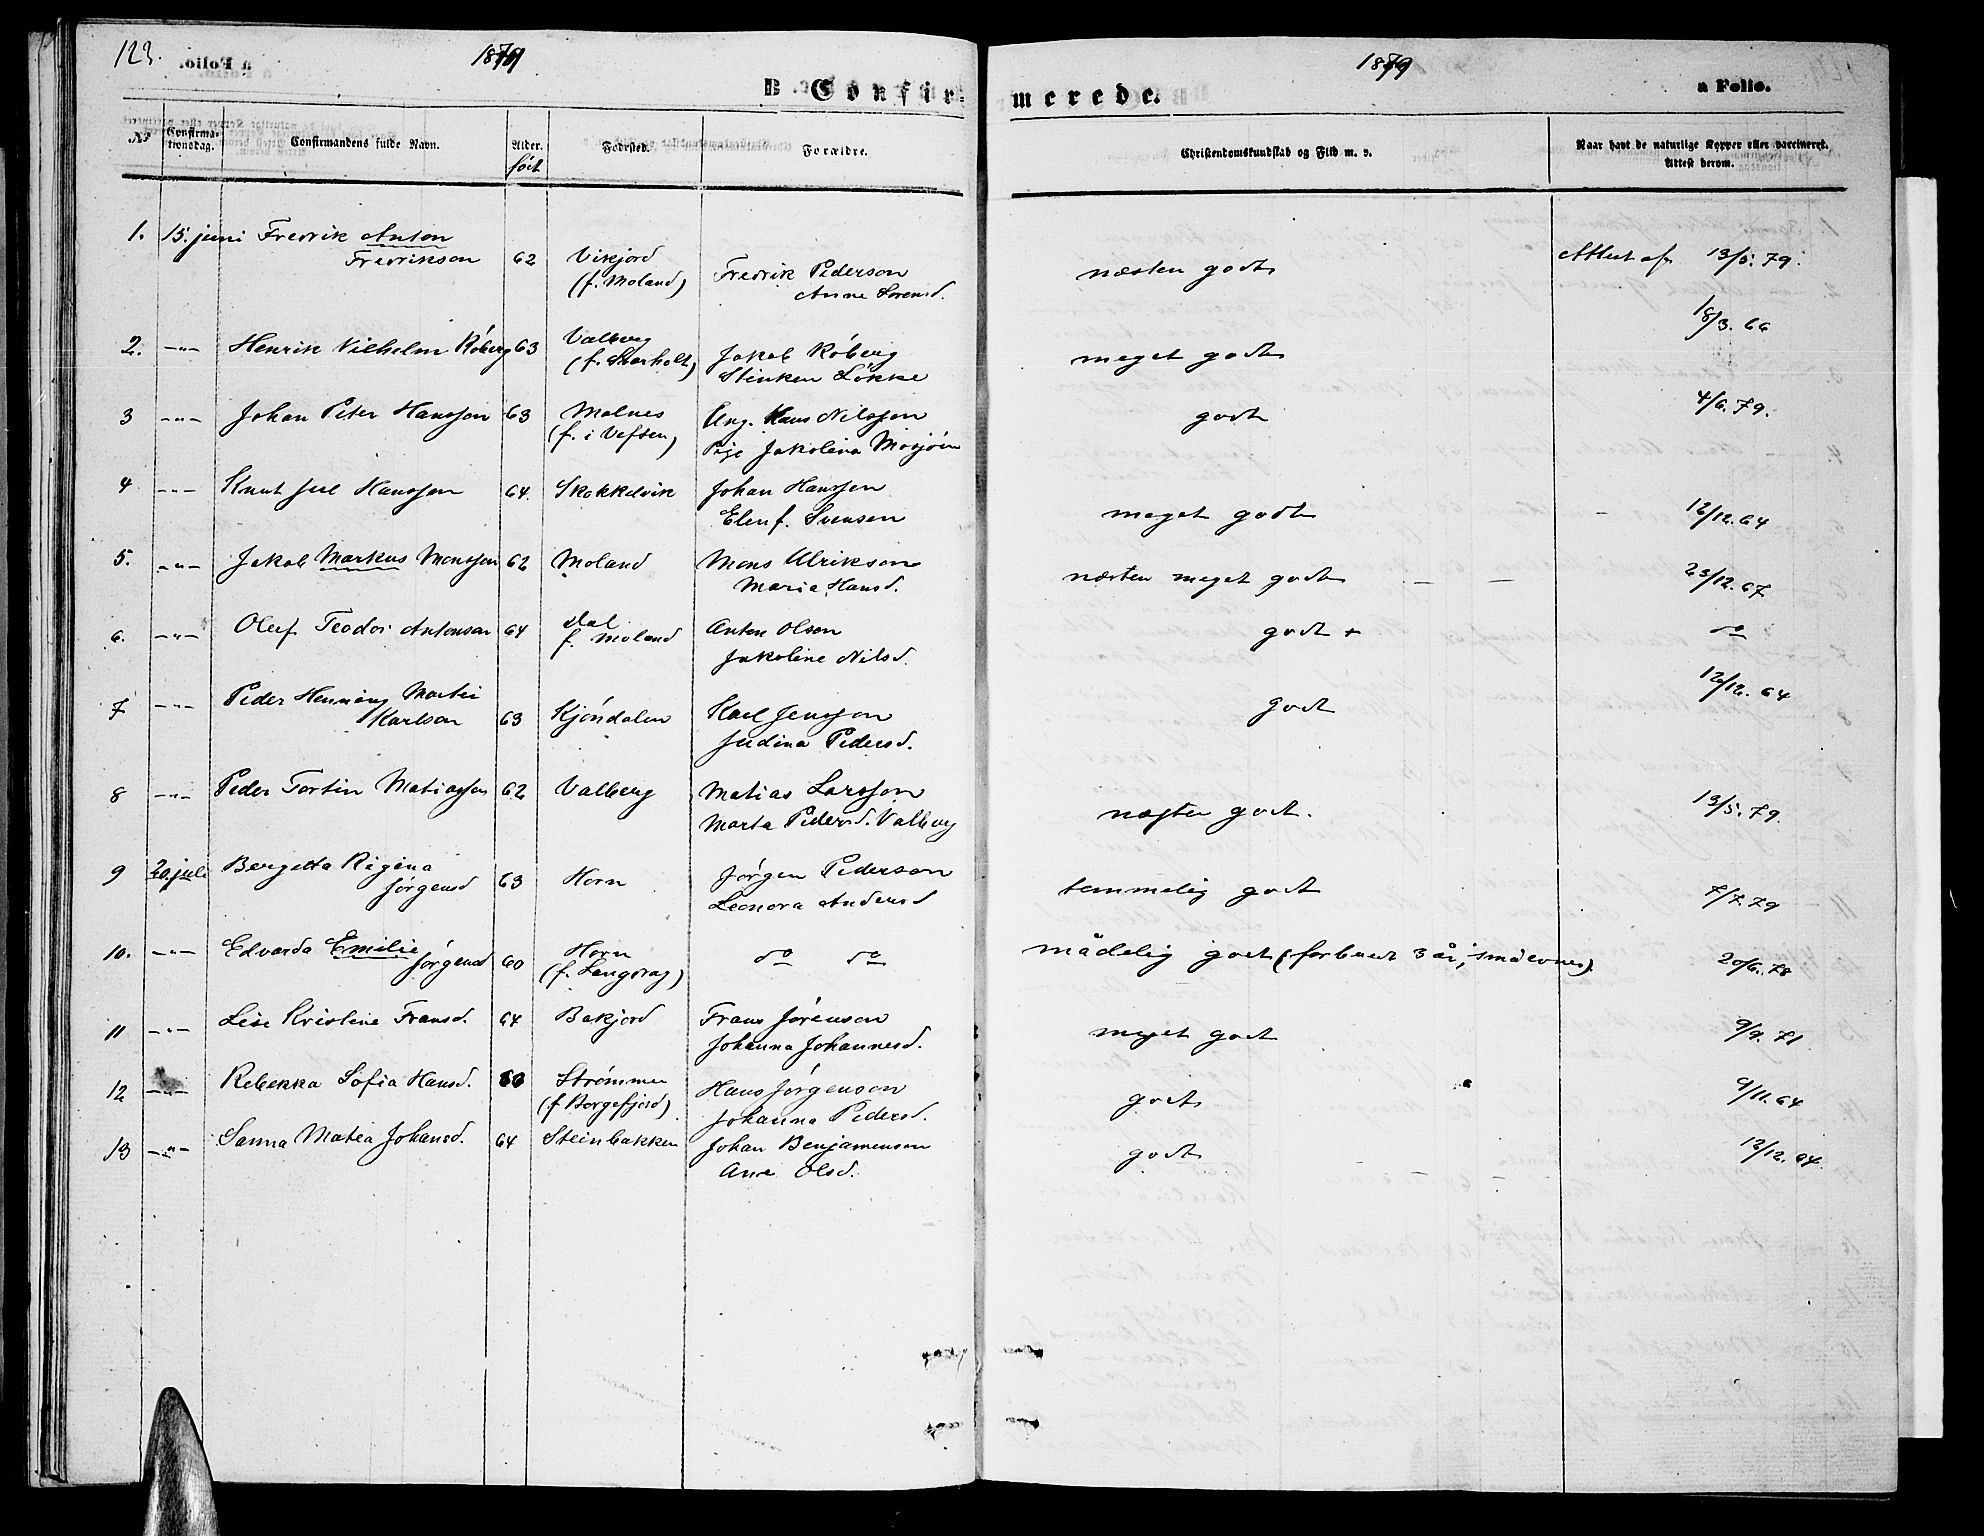 123.
1879
1879
B. Confir-
merede.
a Folio.
№
Confirma-
tionsdag.
Confirmandens fulde Navn.
Alder.
föt
Fødested.
Forældre.
Christendomskundskab og Flid m. v.
Naar havt de naturlige Kopper eller vaccineret.
Attest derom.
1. 15. juni Fredrik Anton
Fredrikson 62 Vikjord
(f. Moland) Fredrik Pederson
Anne Sorensd. næsten godt Attest af 13/5. 79.
2. -"- Henrik Vilhelm Röberg 63 Valberg
(f. Svarholt) Jakob Röberg
Stinken Lökke meget godt 18/3. 66
3 -"- Johan Peter Hansson 63 Molnes
(f. i Vefsen) Ung. Hans Nilsson
Pige Jakolina Mosjöen godt 4/6. 79.
4 -"- Knut Juel Hansson 64. Skokkelvik Johan Hansson
Elen f. Svensen meget godt - 12/12. 64
5. -"- Jakob Markus Monsson 62 Moland Mons Ulrikson
Maria Hansd. næsten meget godt - - 23/12. 67
6. -"- Oluf Teodor Antonson 64 Dal
f. Moland Anton Olson
Jakoline Nilsd. godt + do
7 -"- Peder Henning Martin
Karlson 63 Kjöndalen Karl Jensson
Judina Pedersd. godt 12/12. 64
8 -"- Peder Tortin Matiasson 62 Valberg Matias Larsson
Marta Pedersd. Valberg næsten godt. 13/5. 79.
9 20. juli Bergetta Regina
Jörgensd 63 Horn Jörgen Pederson
Leonora Andersd temmelig godt 7/7. 79
10. -"- Edvarda Emilie
Jörgensd 60 Horn
(f. Langdrag) do do mådelig godt (forberedt 3 år; småevner). 20/6. 78
11 -"- Lise Kristine Fransd. 64 Bakjord Frans Jörenson
Johanna Johannesd. meget godt 9/9. 71
12 -"- Rebekka Sofia Hansd. 60 Strömmen
(f Borgefjord) Hans Jörgenson
Johanna Pedersd. godt 9/11. 64
13 -"- Sanna Matea Johansd. 64 Steinbakken Johan Benjamenson
Ane Olsd. godt - - 12/12. 64.